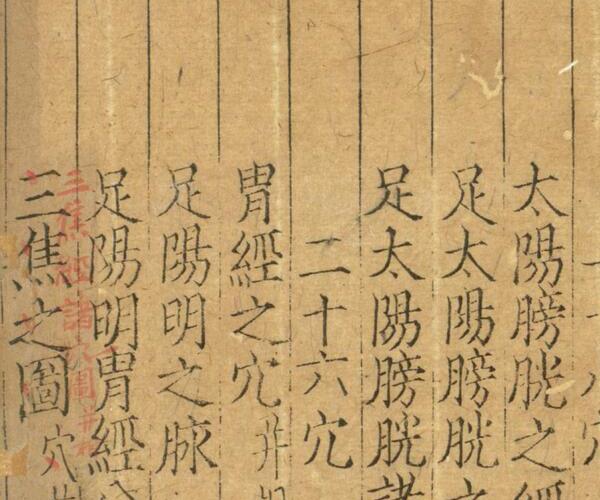 太陽膀胱之經
足太陽膀胱之
足太陽膀胱諸
二十六穴
胃經之穴并
足陽明之脉
足陽明胃經
三焦之圖穴
三焦經諸穴圖并